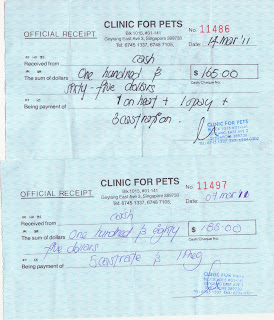 CLINIC FOR PETS
No 11486
OFFICIAL RECEIPT
Blk 1015, #01-141
Geylang East Ave 3, Singapore 389730
Tel: 6745 1337, 6748 7105
Date: 14 mar '11
Received from cash
The sum of dollars One hundred & $ 165.00
sixty-five dollars
Cash/Cheque No.
Being payment of 1 on heat + 1 spay +
3 castration.
CLINIC FOR PETS
CLINIC FOR PETS
No 11497
OFFICIAL RECEIPT
Blk 1015, #01-141
Geylang East Ave 3, Singapore 389730
Tel: 6745 1337, 6748 7105
Date:
Received from cash
The sum of dollars One hundred & eighty
five dollars
$
Cash/Cheque No.
Being payment of 5 castrate & 1
CLINIC FOR PETS